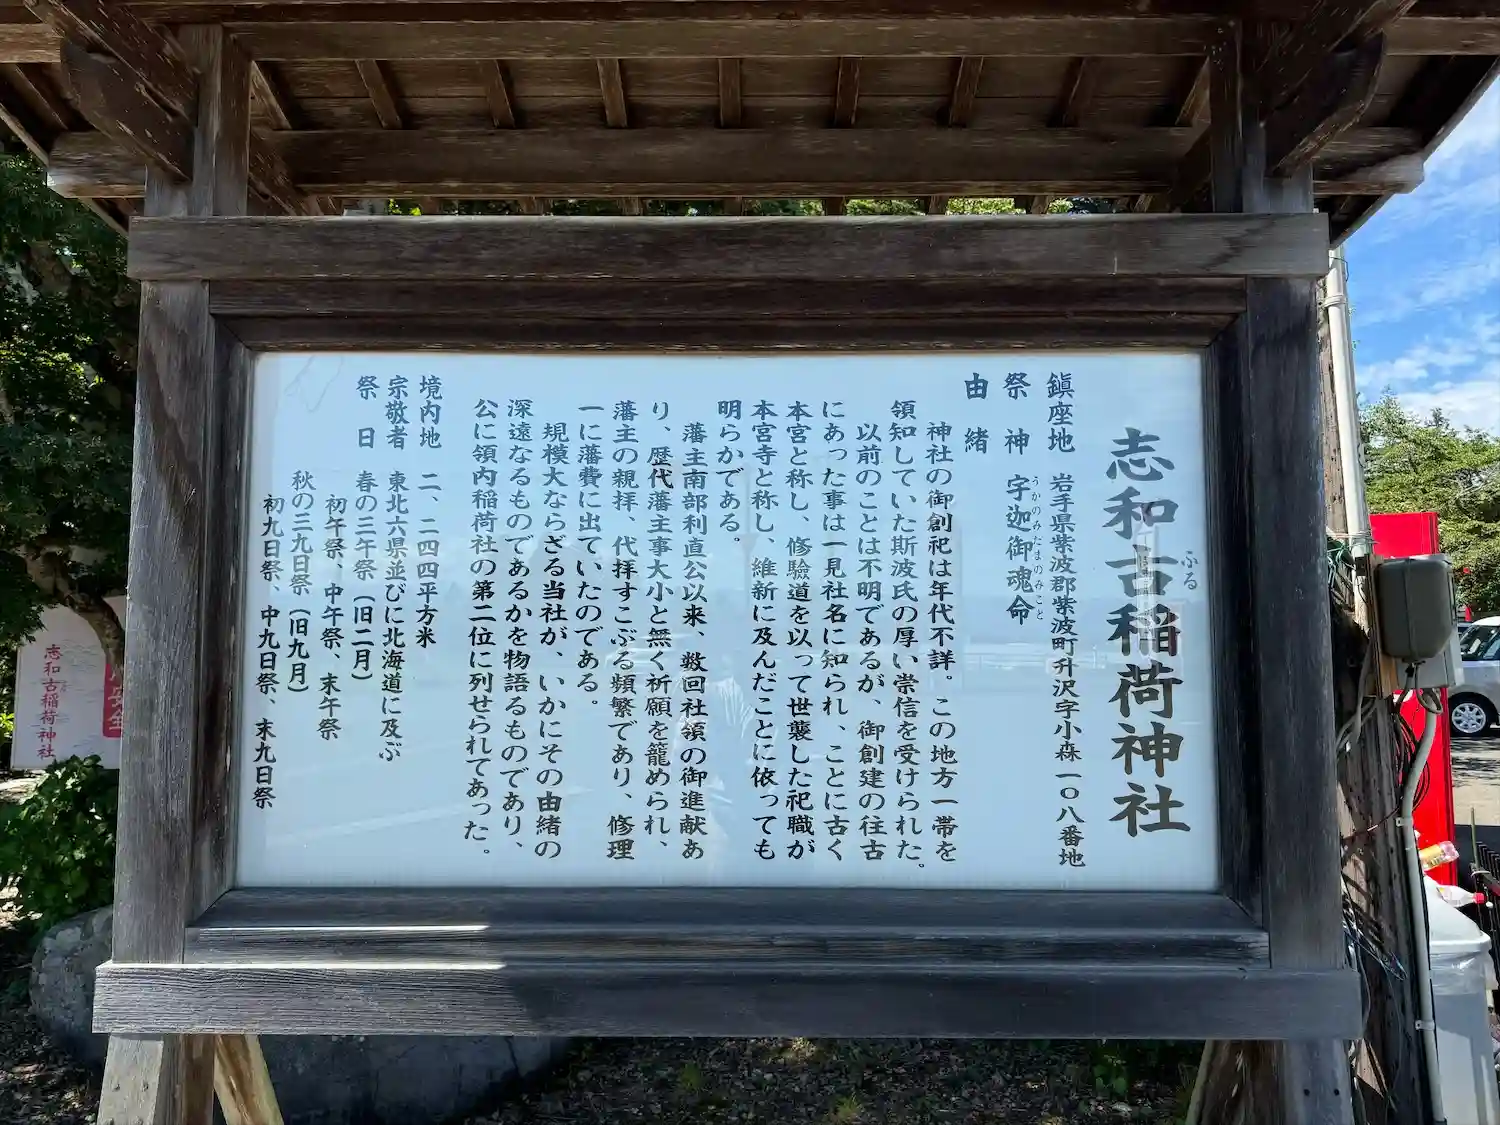 志和古稲荷神社
ふる
鎭座地 岩手県紫波郡紫波町升沢字小森一〇八番地
祭神 宇迦御魂命
うかのみたまのみこと
由緒
神社の御創祀は年代不詳。この地方一帯を
領知していた斯波氏の厚い崇信を受けられた。
以前のことは不明であるが、御創建の往古
にあった事は一見社名に知られ、ことに古く
本宮と称し、修驗道を以って世襲した祀職が
本宮寺と称し、維新に及んだことに依っても
明らかである。
藩主南部利直公以来、数回社領の御進献あ
り、歴代藩主事大小と無く祈願を籠められ、
藩主の親拝、代拝すこぶる頻繁であり、修理
一に藩費に出ていたのである。
規模大ならざる当社が、いかにその由緒の
深遠なるものであるかを物語るものであり、
公に領内稲荷社の第二位に列せられてあった。
境内地 二、二四四平方米
宗敬者 東北六県並びに北海道に及ぶ
祭日 春の三午祭（旧二月）
初午祭、中午祭、末午祭
秋の三九日祭（旧九月）
初九日祭、中九日祭、末九日祭
志和古稲荷神社
安全